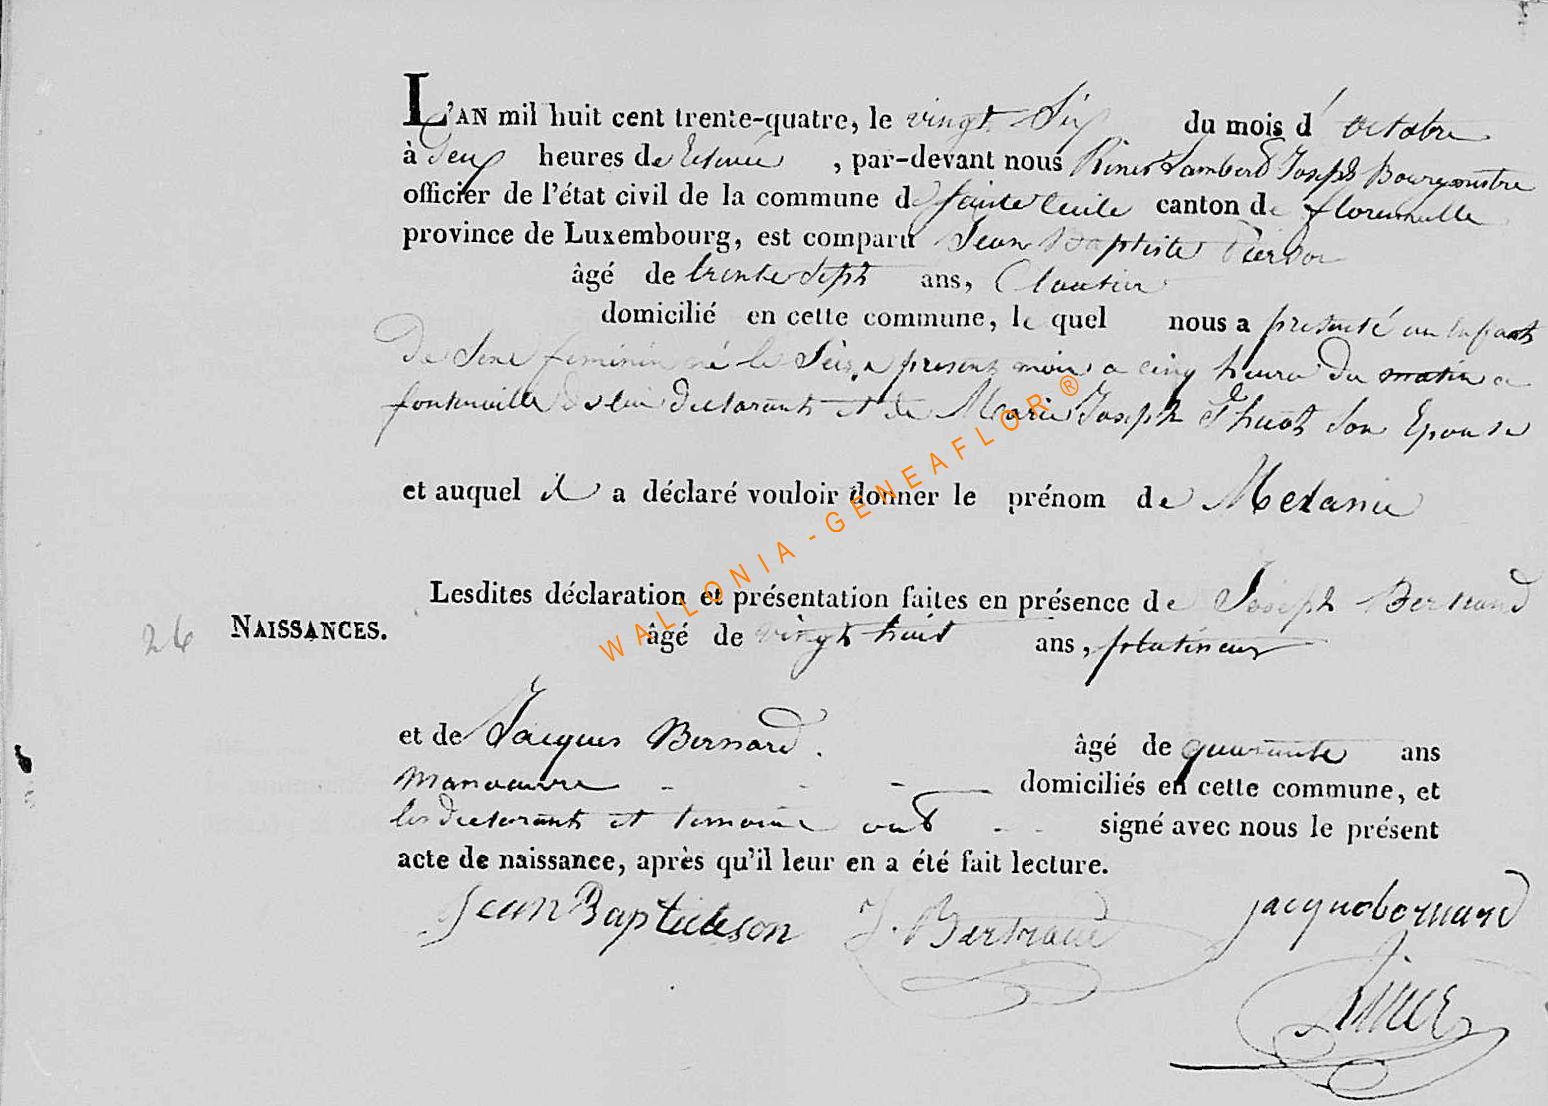 L'AN mil huit cent trente-quatre, le vingt Six du mois d'octobre
à deux heures de relevée, par-devant nous Lambert Joseph Bourgmestre
officier de l'état civil de la commune de Sainte Cecile canton de florenville
province de Luxembourg, est comparu Jean Baptiste
âgé de trente Sept ans, Cloutier
domicilié en cette commune, le quel nous a presenté un Enfant
De Sexe feminin né le present mois a cinq heures du matin a
fontenoille de lui declarant et de Marie Joseph Thiry son Epouse
et auquel il a déclaré vouloir donner le prénom de Melanie
Lesdites déclaration et présentation faites en présence de Joseph Bertrand
26 NAISSANCES.
âgé de vingt huit ans,
et de Jacques Bernard. âgé de quarante ans
manoeuvre - - - domiciliés en cette commune, et
les declarants et temoins ont - - signé avec nous le présent
acte de naissance, après qu'il leur en a été fait lecture.
Jean Baptiste J. Bertrand jacque bernard
WALLONIA - GENEAFLOR ®